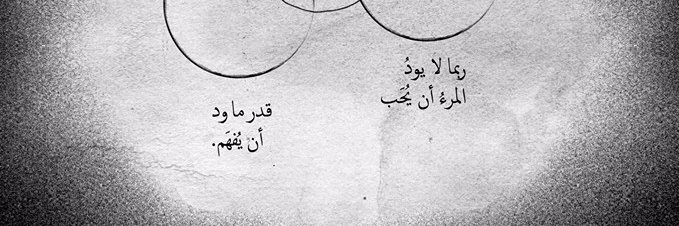 ربما لا يودُ
المرءُ أن يُحَب
قدر ما ود
أن يُفهَم.